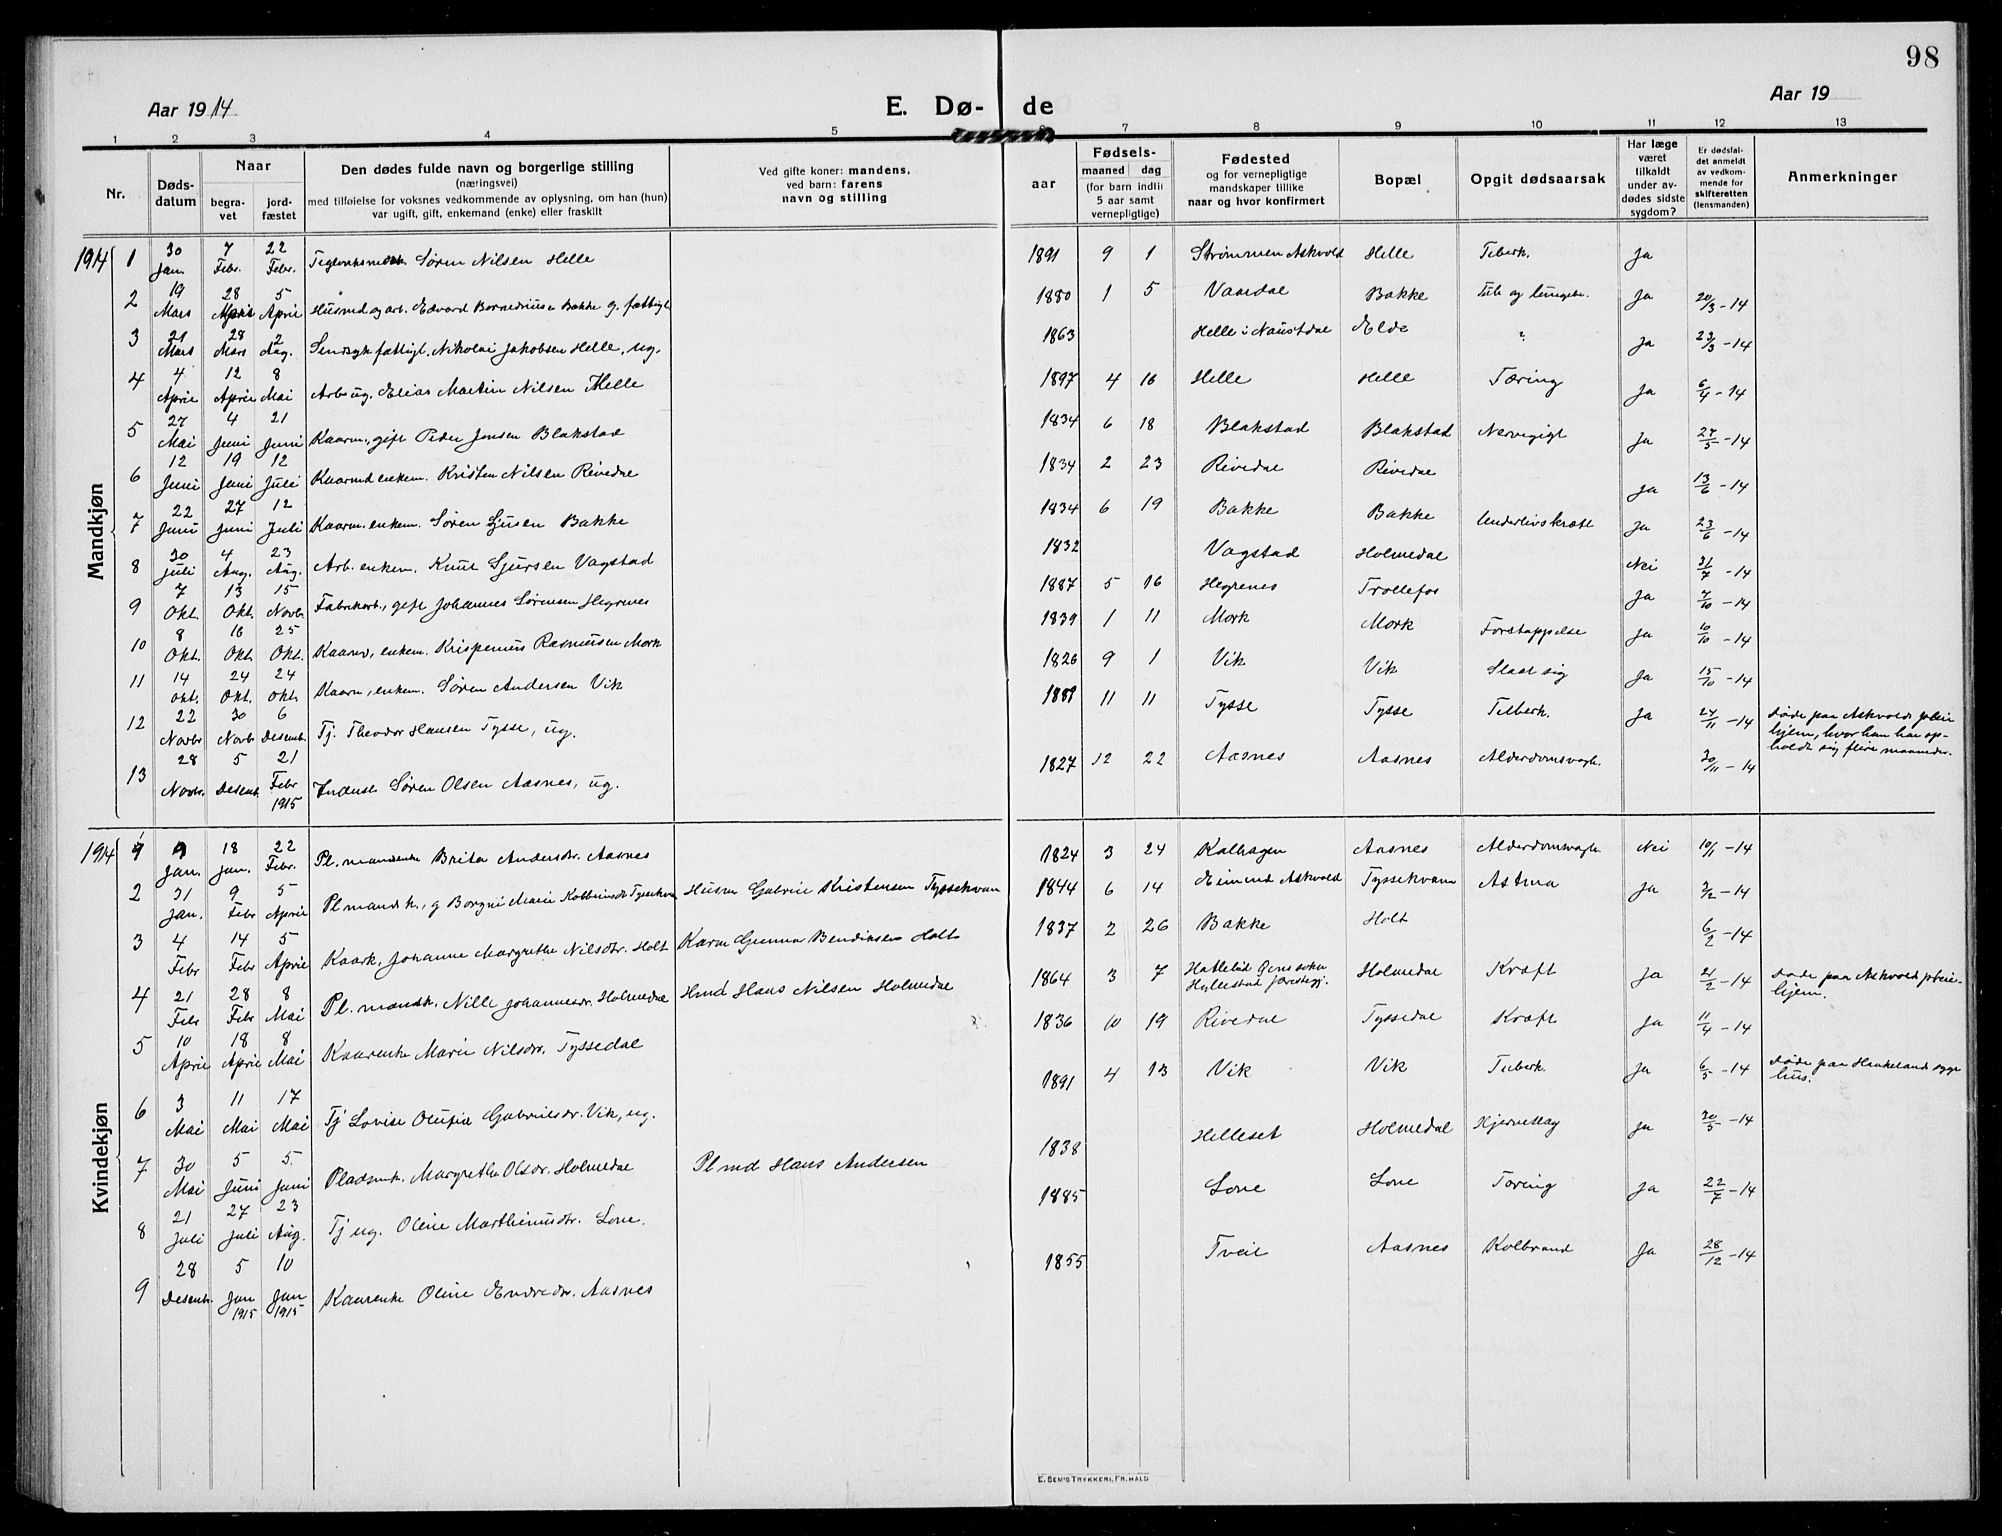 98
Aar 1914
E. Dø-
de
Aar 19
1 2 3 4 5 6 7 8 9 10 11 12 13
Nr.
Døds-
datum
Naar
begra-
vet
jord-
fæstet
Den dødes fulde navn og borgerlige stilling
(næringsvei)
med tilføielse for voksnes vedkommende av oplysning, om han (hun)
var ugift, gift, enkemand (enke) eller fraskilt
Ved gifte koner: mandens,
ved barn: farens
navn og stilling
aar
Fødsels-
maaned dag
(for barn indtil
5 aar samt
vernepligtige)
Fødested
og for vernepligtige
mandskaper tillike
naar og hvor konfirmert
Bopæl
Opgit dødsaarsak
Har læge
været
tilkaldt
under av-
dødes sidste
sygdom?
Er dødsfal-
det anmeldt
av vedkom-
mende for
skifteretten
(lensmanden)
Anmerkninger
Mandkjøn
1914 1 30 Jan. 7 Febr. 22 Febr. Søren Nilsen Helle 1891 9 1 Strømmen Askvold Helle Tuberk. Ja
2 19 Mars 28 5 April Husmd og arb. Edvard Bakke g. fattigl 1880 1 5 Vaardal Bakke Tub og lungebe. Ja 20/3-14
3 21 Mars 28 Mars 2 Aug. Sindsyk fattigl. Nikolai Jakobsen Helle, ug. 1863 Helle i Naustdal Elde ? Ja 23/3-14
4 4 April 12 April 8 Mai Arb ug. Elias Martin Nilsen Helle 1897 4 16 Helle Helle Tæring Ja 6/4-14
5 27 Mai 4 Juni 21 Juni Kaarm, gift Peder Jensen Blakstad 1834 6 18 Blakstad Blakstad Nervegigt Ja 27/5-14
6 12 Juni 19 Juni 12 Juli Kaarmd enkem. Kristen Nilsen Rivedal 1834 2 23 Rivedal Rivedal Ja 13/6-14
7 22 Juni 27 Juni 12 Juli Kaarm, enkem. Søren Bakke 1834 6 19 Bakke Bakke Underlivskræft Ja 23/6-14
8 30 Juli 4 Aug. 23 Aug. Arb. enkem. Knut Sjursen Vagstad 1832 Vagstad Holmedal Nei 31/7-14
9 7 Okt. 13 Okt. 15 Novbr Fabrikarb., gift Johannes Sørensen Hegrenes 1887 5 16 Hegrenes Trollefos Ja 7/10-14
10 8 Okt. 16 Okt. 25 Okt. Kaarm, enkem. Krispenus Rasmussen Mork 1839 1 11 Mork Mork Forstoppelse Ja 10/10-14
11 14 Okt. 24 Okt. 24 Okt. Kaarm, enkem. Søren Andersen Vik 1826 9 1 Vik Vik Slaat sig Ja 15/10-14
12 22 Novbr 30 Novbr 6 Desemb. Tj. Theodor Hansen Tysse, ug. 1889 11 11 Tysse Tysse Tuberk. Ja 24/11-14 Døde paa Askvold pleie
hjem, hvor han har op-
holdt sig flere maaneder.
13 28 Novbr. 5 Desemb. 21 Febr 1915 Inderst Søren Olsen Aasnes, ug. 1827 12 22 Aasnes Aasnes Alderdomsvagh. 30/11-14
Kvindekjøn
1914 1 9 Jan. 18 Jan. 22 Febr. Pl. mandenke Brita Andersdr. Aasnes 1824 3 24 Kalhagen Aasnes Alderdomsvagh. Nei 10/1-14
2 31 Jan. 9 Febr 5 April Pl mandsk., g Borgni Marie Kolbeinsdr Tyssekvam Husm Gabriel Kristensen Tyssekvam 1844 6 14 Askvold Tyssekvam Astma Ja 3/2-14
3 4 Febr 14 Febr 5 April Kaark, Johanne Margrethe Nilsdtr. Holt Karm Gunnar Bendiksen Holt 1837 2 26 Bakke Holt 6/2-14
4 21 Febr 28 Febr 8 Mai Pl. mandsk. Nille Johannesdr. Holmedal Hmd Hans Nilsen Holmedal 1864 3 7 Hatlelid sokn
Hyllestad prestegj. Holmedal Kræft Ja 21/2-14 Døde paa Askvold pleie-
hjem.
5 10 April 18 April 8 Mai Kaarenke Marie Nilsdr. Tyssedal 1836 10 19 Rivedal Tyssedal Kræft Ja 11/4-14
6 3 Mai 11 Mai 17 Mai Tj Lovise Olufia Gabrielsdr. Vik, ug. 1891 4 13 Vik Vik Tuberk. Ja 6/5-14 Døde paa Haukeland syge
hus.
7 30 Mai 5 Juni 5 Juni Pladsmk. Margrethe Olsdr. Holmedal Pl md Hans Andersen 1838 Helleset Holmedal Hjerneslag Ja 30/5-14
8 21 Juli 27 Juli 23 Aug. Tj ug. Oline Marthinusdr. Lone. 1885 Lone Lone Tæring Ja 22/7-14
9 28 Desemb. 5 Jan 1915 10 Jan 1915 Kaarenke Oline Endredr. Aasnes 1855 Tveit Aasnes Kolbrand Ja 28/12-14
E. SEM'S TRYKKERI, FR.HALD